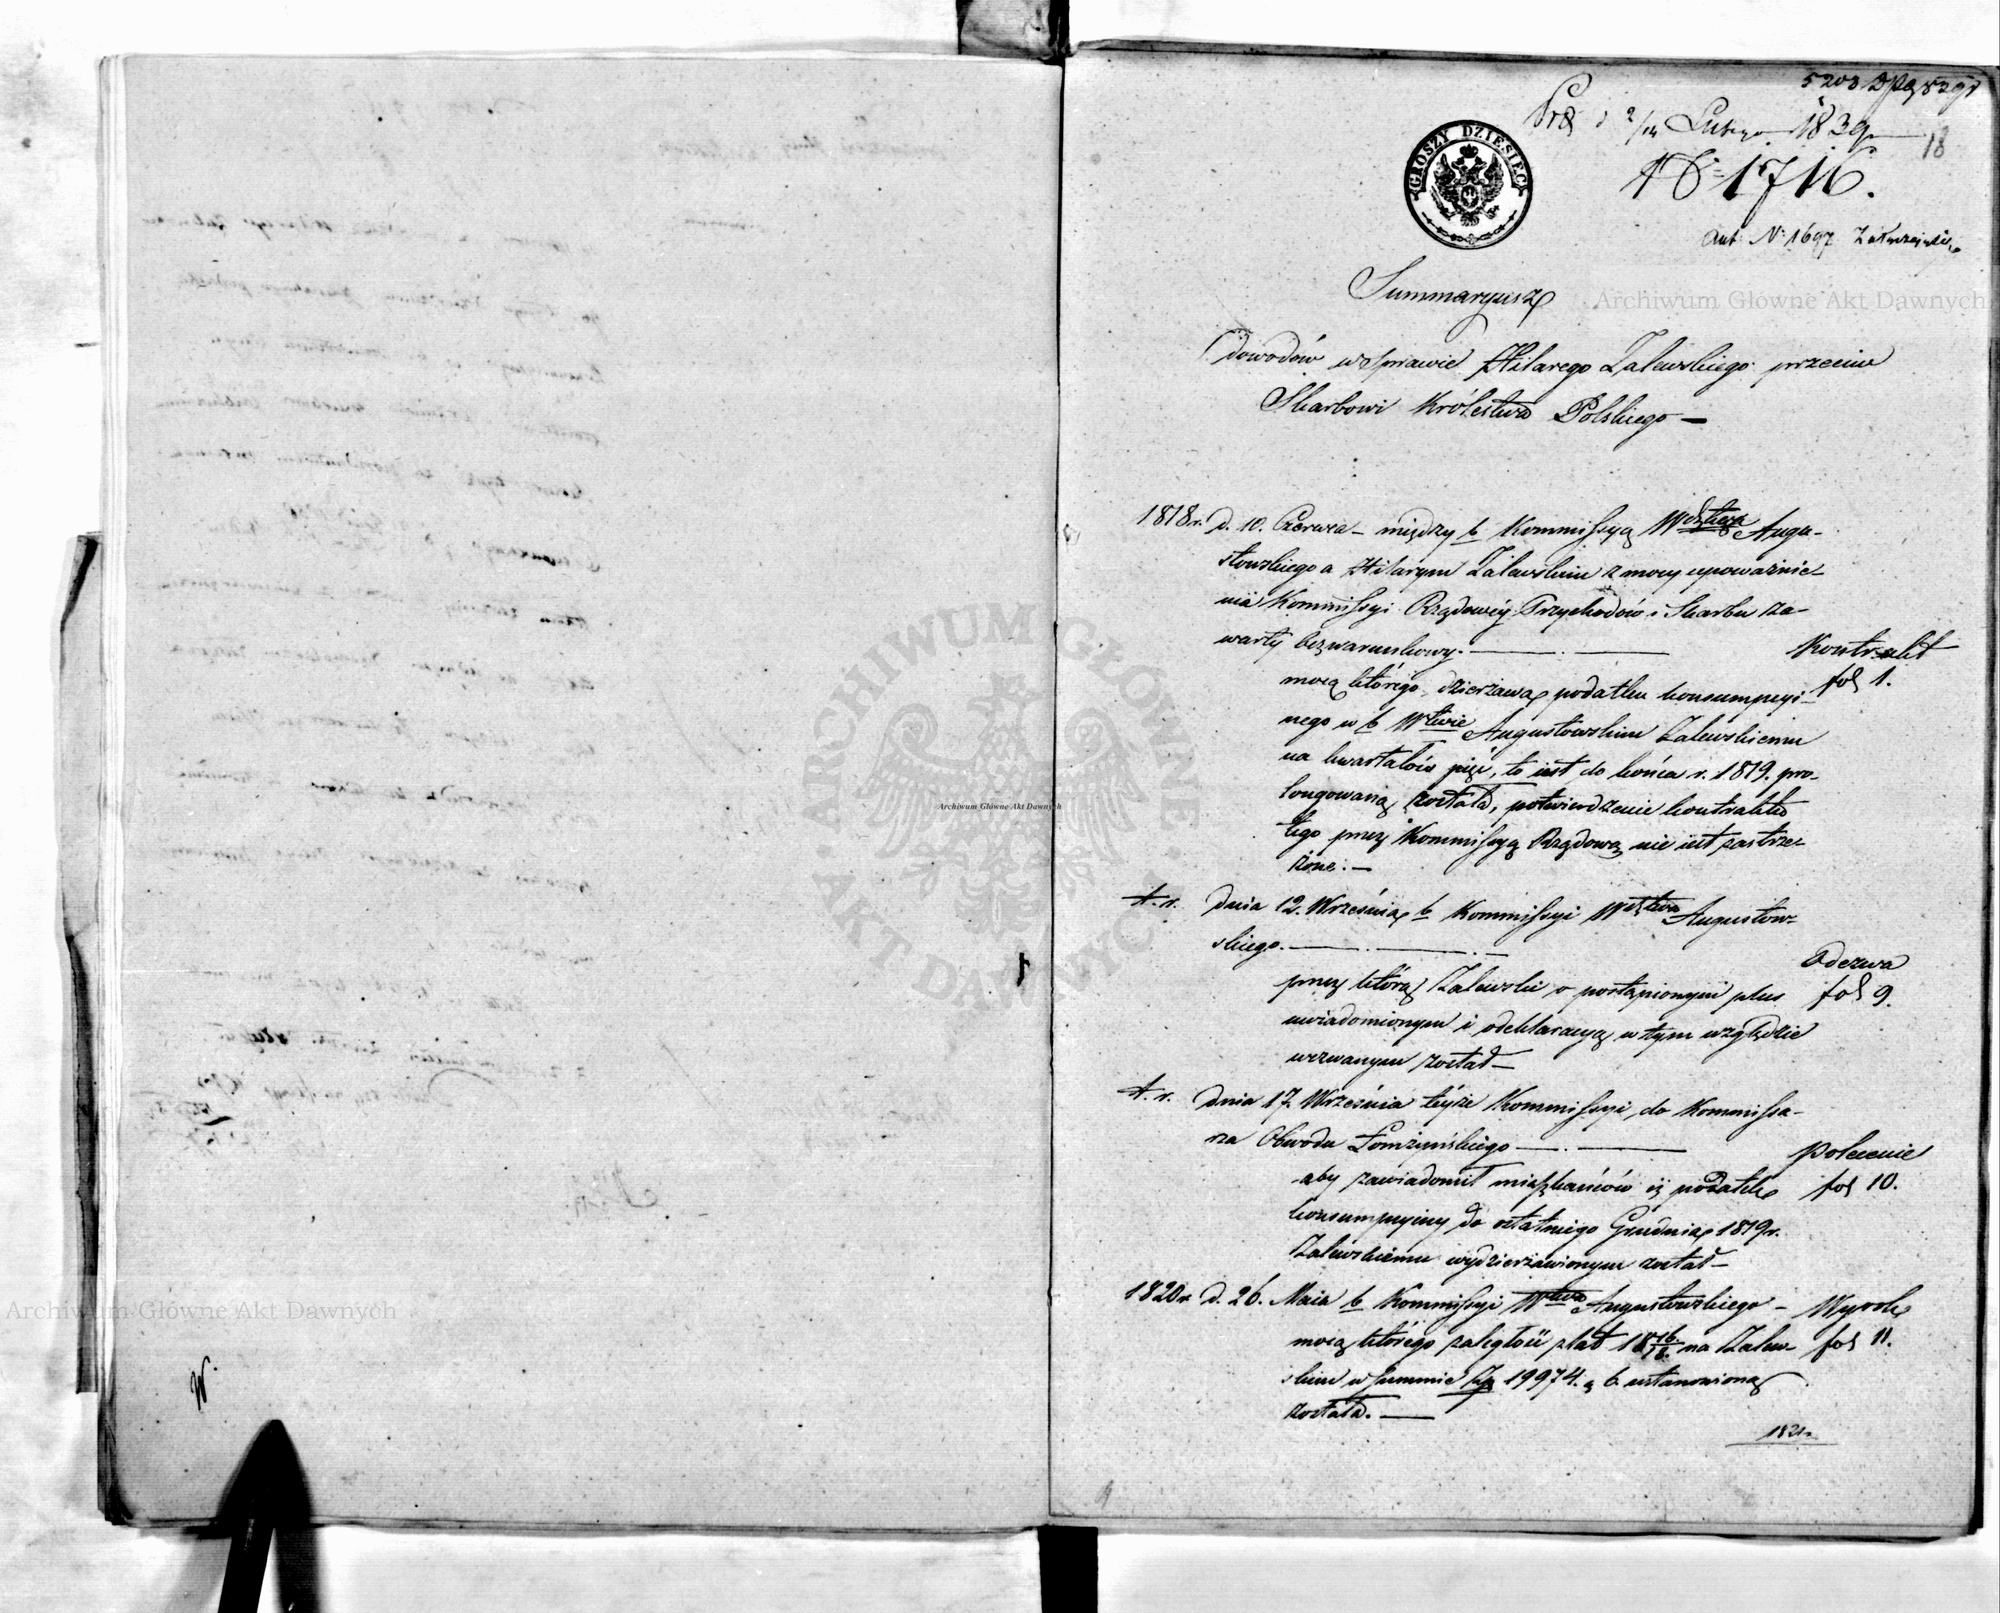 Prs d 2/14 Lutego 1839
18
N 1716.
Ant: N: 1697
GROSZY DZIESIĘĆ
Summaryusz
Archiwum Główne Akt Dawnych
dowodów w sprawie Hilarego Zalewskiego przeciw
Skarbowi Królestwa Polskiego —
1818 r. d. 10. Czerwca – między b Kommissyą Wdztwa Augu-
stowskiego a Hilarym Zalewskim z mocy upoważnie-
nia Kommissyi Rządowéy Przychodów i Skarbu za-
warty bezwarunkowy. —
Kontrakt
fol 1.
mocą którego dzierżawa podatku konsumpcyi-
nego w b Wtwie Augustowskim Zalewskiemu
na kwartałów pięć, to iest do końca r. 1819. pro-
longowaną została, potwierdzenie kontraktu
tego przez Kommissyą Rządową nie iest zastrze-
żone. —
t. r. dnia 12. Września b Kommissyi Wdztwa Augustow-
skiego. —
Odezwa
fol 9.
przez którą Zalewski o postąpionym plus
uwiadomionym i o deklaracyą w tym względzie
wezwanym został —
t. r. dnia 17. Września téyże Kommissyi do Kommissa-
rza Obwodu Łomżyńskiego —
Polecenie
fol 10.
aby zawiadomił mieszkańców iż podatek
konsumpcyiny do ostatniego Grudnia 1819 r.
Zalewskiemu wydzierżawionym został —
1820 r d. 26. Maia b Kommissyi Wtwa Augustowskiego –
Wyrok
fol 11.
mocą którego zaległość z lat 18 16/18 na Zalew-
skim w summie Złp 19974. g 6. ustanowioną
została. —
1821.
ARCHIWUM GŁÓWNE · AKT DAWNYCH ·
Archiwum Główne Akt Dawnych
Archiwum Główne Akt Dawnych
W.